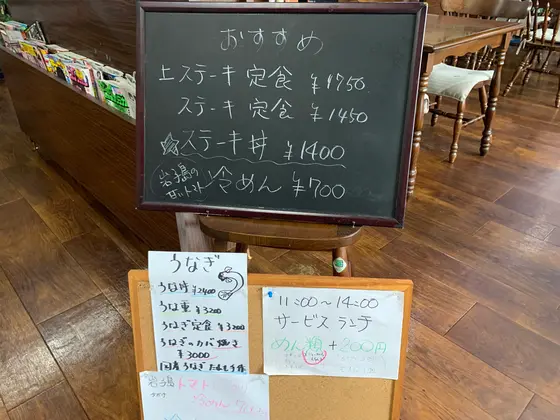 おすすめ
上ステーキ定食 ¥1750
ステーキ定食 ¥1450
☆ステーキ丼 ¥1400
岩子島の
甘いトマト 冷めん ¥700
うなぎ
うな丼 ¥2400
うな重 ¥3200
うなぎ定食 ¥3200
うなぎのカバ焼き
¥3000
国産うなぎ
11:00~14:00
サービスランチ
めん類 +200円
岩子島 トマト